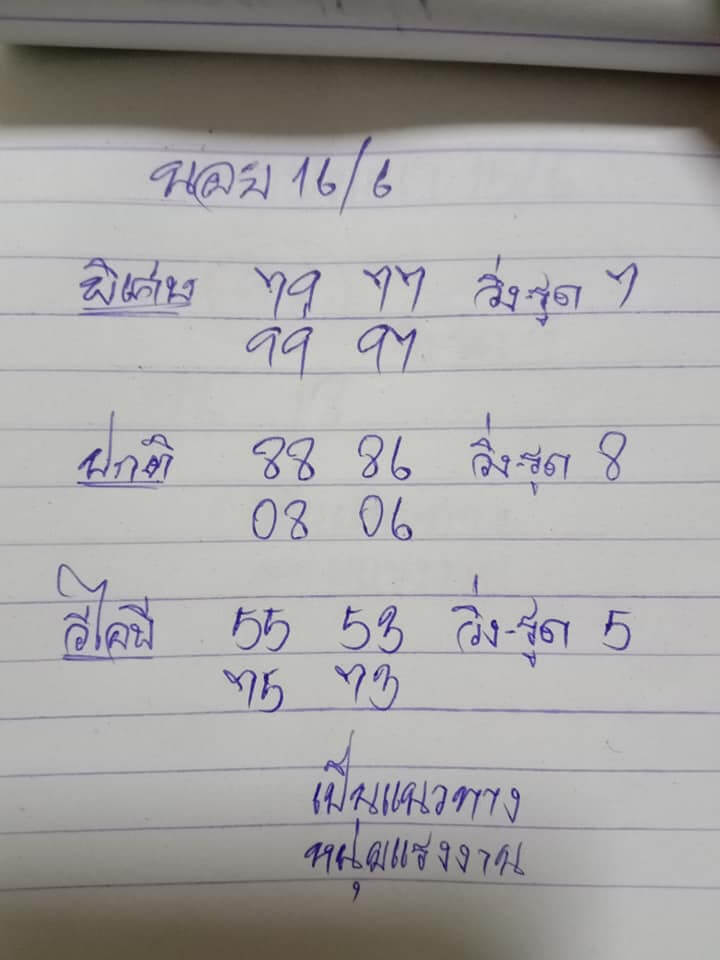 นอย 16/6
พิเศษ 79 77 วิ่ง-รูด 7
99 97
ปกติ 88 86 วิ่ง-รูด 8
08 06
วีไอพี 55 53 วิ่ง-รูด 5
75 73
เป็นแนวทาง
หนุ่มแรงงาน